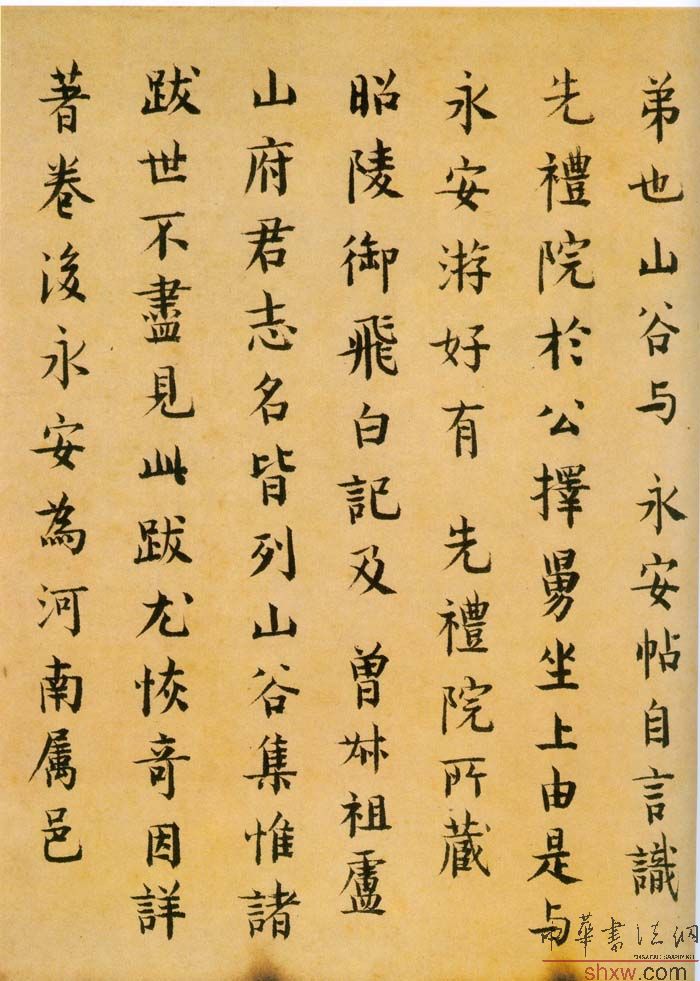 弟也山谷与 永安帖自言識
先禮院於公擇舅坐上由是与
永安游好有 先禮院所藏
昭陵御飛白記及 曾叔祖盧
山府君志名皆列山谷集惟諸
跋世不盡見此跋尤恢奇因詳
著卷後永安為河南属邑
中華書法網
shxw.com